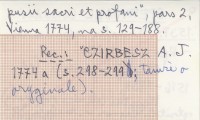 pusii sacri et profani", pars 2,
Vienna 1774, na s. 129-188.
Rec.: "CZIRBESZ A. J.
1774 a (s. 298-299; tamże o
oryginale).